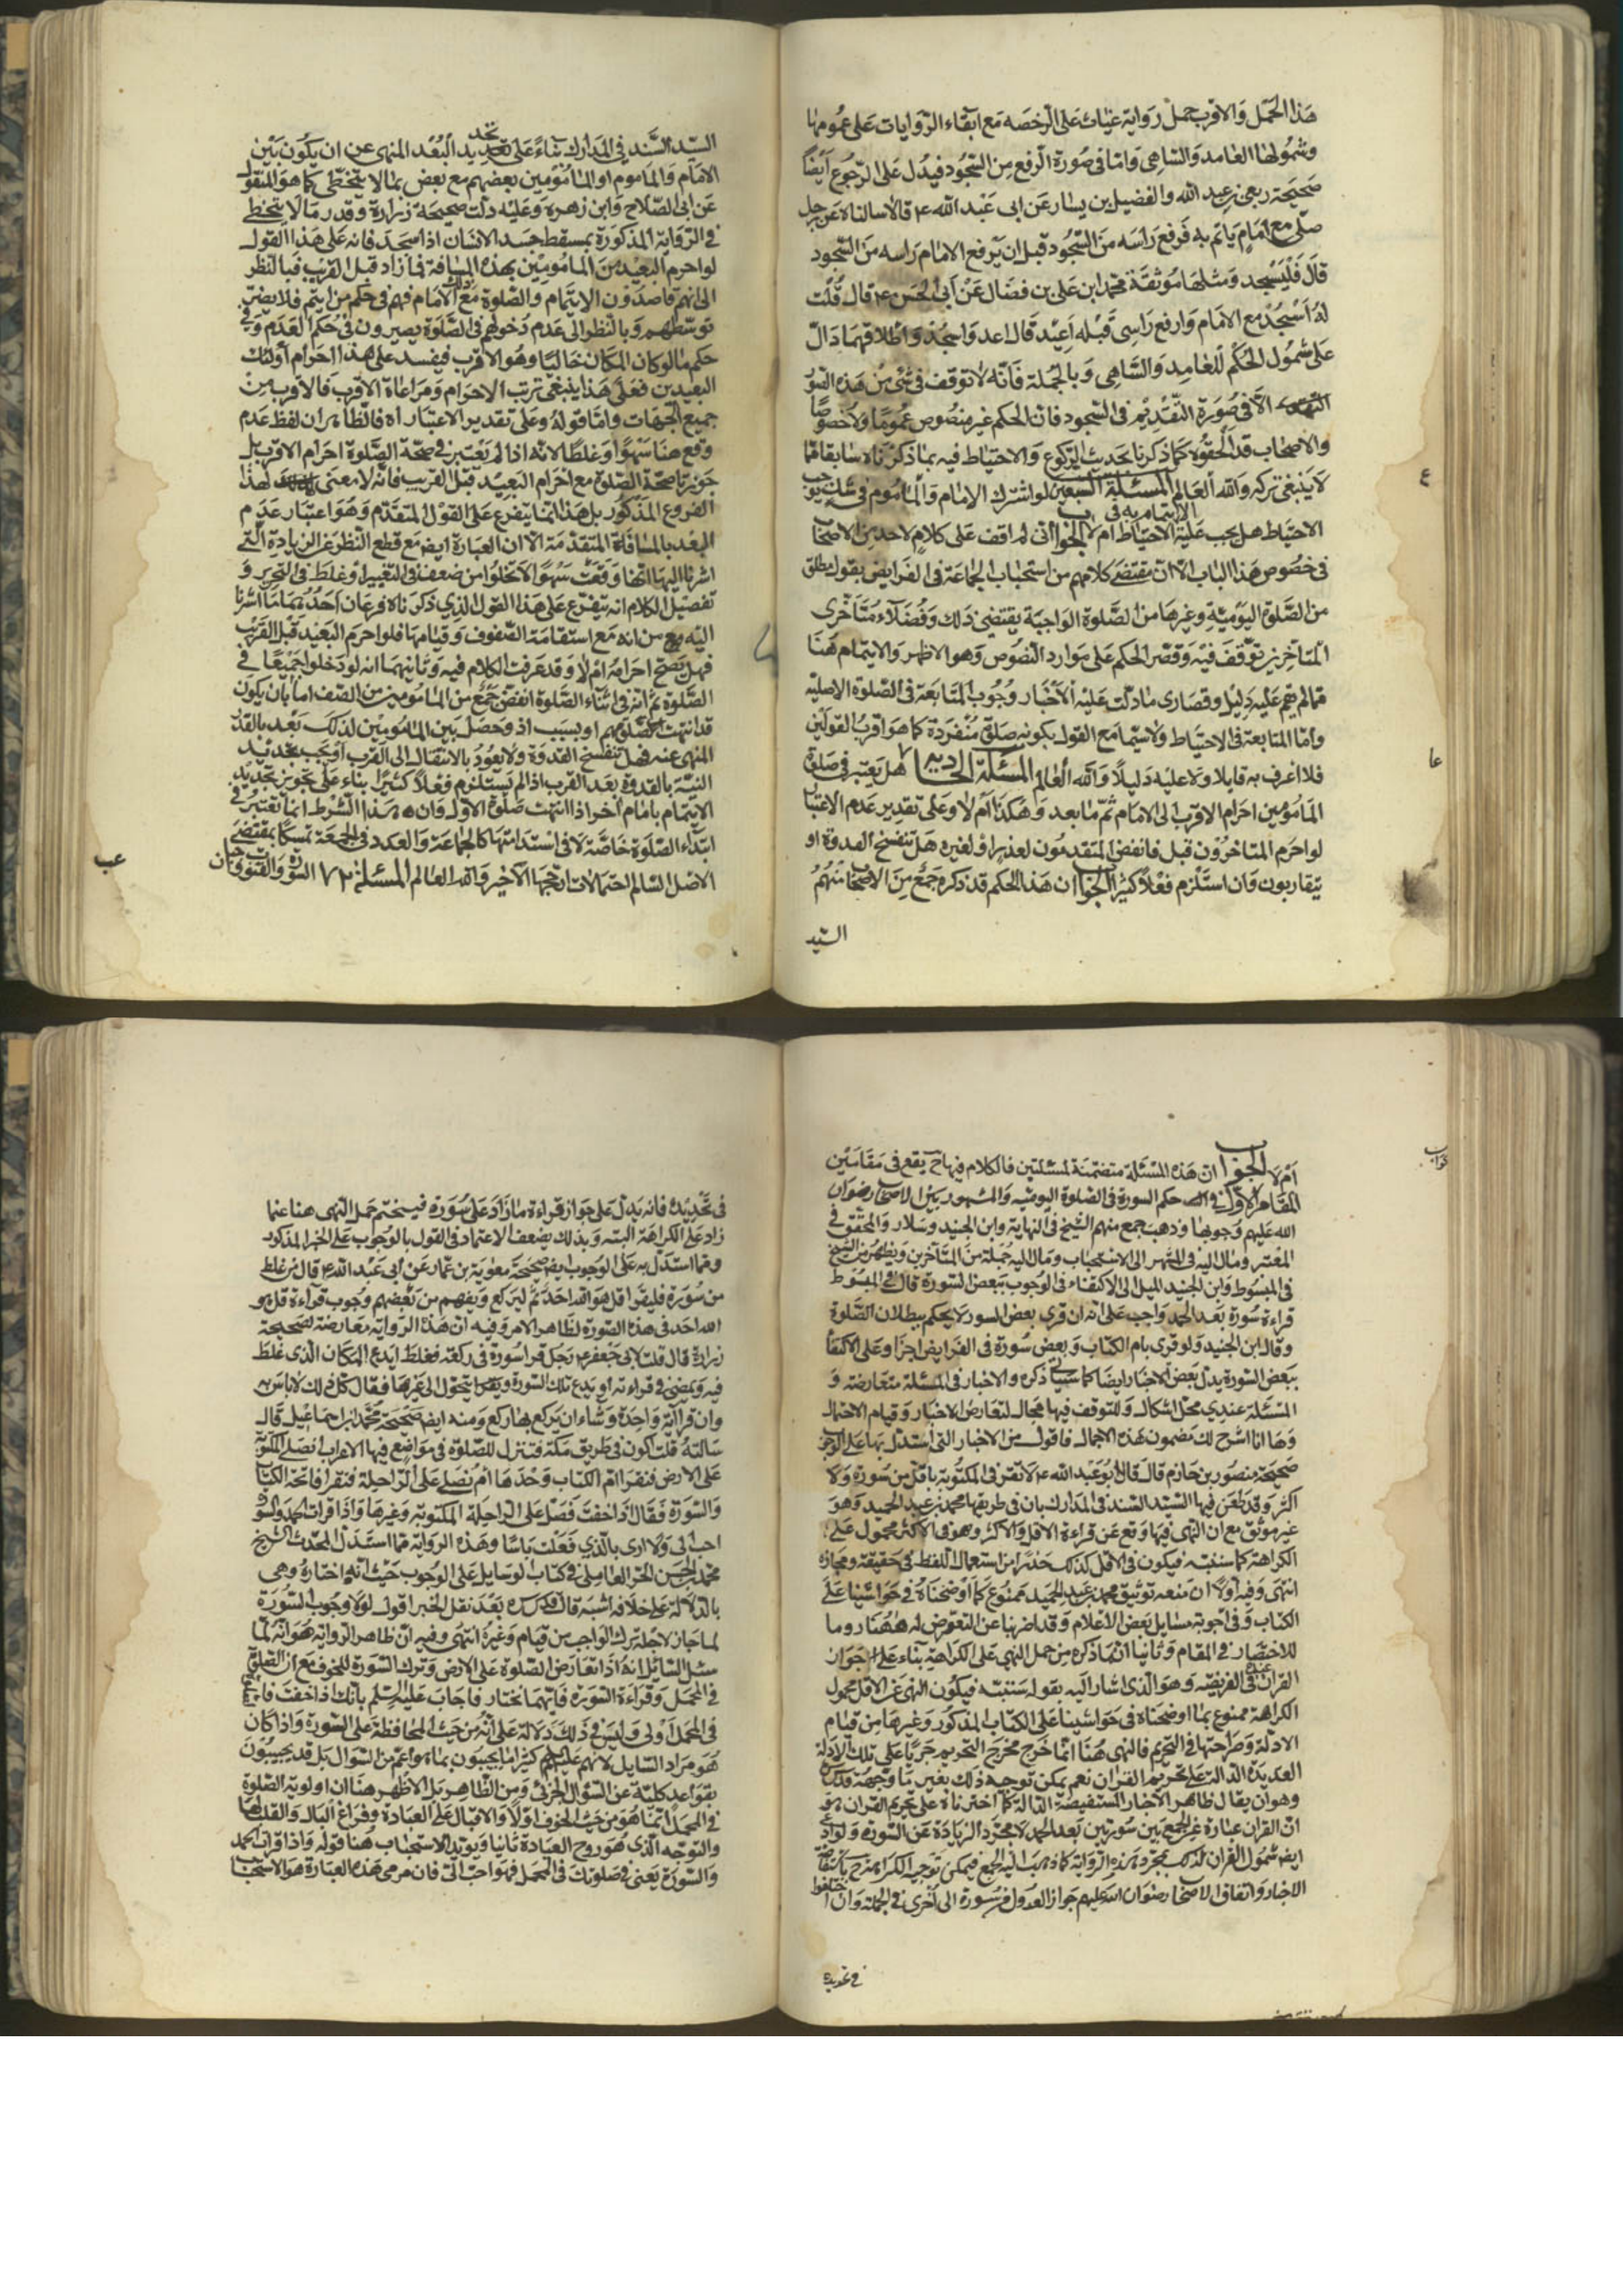 هذا الحمل والاقرب حمل رواية غياث على الرخصه مع ابقاء الروايات على عمومها
وشمولها العامد والساهي واما في صورة الرفع من السجود فيدل على الرجوع ايضًا
صحيحة ربعي بن عبد الله والفضيل بن يسار عن ابى عبد الله ع قالا سالناه عن رجل
صلى مع امام ياتم به فرفع راسه من السجود قبل ان يرفع الامام راسه من السجود
قال فليسجد ومثلها موثقة محمد ابن علي بن فضال عن أبي الحسن ع قال قلت
له اسجد مع الامام وارفع راسي قبله اعيد قال اعد واسجد واطلاقهما دال
على شمول الحكم للعامد والساهي وبالجملة فانه لا توقف في شئ من هذه الصور
الا في صورة التقديم في السجود فان الحكم غير منصوص عمومًا ولا خصوصًا
والاصحاب قد الحقوه كما ذكرنا بحدث الركوع والاحتياط فيه بما ذكرناه سابقا مما
لا ينبغي تركه والله العالم المسئلة السبعين لو اشترك الامام والماموم في شك يوجب
الاحتياط هل يجب عليه الاحتياط ام لا الجواب اني لم اقف على كلام لاحد من الاصحاب
الايتمام به في
في خصوص هذا الباب الا ان مقتضى كلامهم من استحباب الجماعة في الفرايض بقول مطلق
من الصلوة اليومية وغيرها من الصلوة الواجبة يقتضي ذلك وفضلاء متاخرى
المتاخرين توقف فيه وقصر الحكم على موارد النصوص وهو الاظهر والايتمام هنا
مما لم يقم عليه دليل وقصارى ما دلت عليه الاخبار وجوب المتابعة في الصلوة الاصليه
واما المتابعة في الاحتياط ولا سيما مع القول بكونه صلوة منفردة كما هو اقرب القولين
فلا اعرف به قايلا ولا عليه دليلًا والله العالم المسئلة الحاديه ٧ هل يعتبر في صلوة
المامومين احرام الاقرب الى الامام ثم ما بعد وهكذا ام لا وعلى تقدير عدم الاعتبار
لو احرم المتاخرون قبل فانفض المتقدمون لعذر او لغيره هل تنفسخ القدوة او
يتقاربون وان استلزم فعلًا كثيرًا الجواب ان هذا الحكم قد ذكره جمع من الاصحاب منهم
السيد
ع
عا
السيد السند في المدارك بناءً على تحديد البعد المنهي عن ان يكون بين
الامام والماموم او المامومين بعضهم مع بعض بما لا يتخطى كما هو المنقول
عن ابي الصلاح وابن زهرة وعليه دلت صحيحة زرارة وقدر ما لا يتخطى
في الرواية المذكورة بمسقط جسد الانسان اذا سجد فانه على هذا القول
لو احرم البعيد من المامومين بهذه المسافة فما زاد قبل القريب فبالنظر
الى انهم قاصدون الايتمام والصلوة مع ذلك الامام فهم في حكم من ايتم فلا يضر
توسطهم وبالنظر الى عدم دخولهم في الصلوة يصيرون في حكم العدم وفي
حكم ما لو كان المكان خاليًا وهو الاقرب فيفسد على هذا احرام اولئك
البعيدين فعلى هذا ينبغي ترتب الاحرام ومراعاة الاقرب فالاقرب من
جميع الجهات واما قوله وعلى تقدير الاعتبار اه فالظاهر ان لفظ عدم
وقع هنا سهوًا وغلطًا لانه اذا لم يعتبر في صحة الصلوة احرام الاقرب بل
جوزنا صحة الصلوة مع احرام البعيد قبل القريب فانه لا معنى لهذا
الفروع المذكور بل هذا انما يتفرع على القول المتقدم وهو اعتبار عدم
البعد بالمسافة المتقدمة الا ان العبارة ايضا مع قطع النظر عن الزيادة التي
اشرنا اليها انها وقعت سهوًا لا تخلوا من ضعف في التعبير او غلط في التحرير و
تفصيل الكلام انه يتفرع على هذا القول الذي ذكرناه فرعان احدهما ما اشرنا
اليه من انه مع استقامة الصفوف وقيامها فلو احرم البعيد قبل القريب
فهل يصح احرامه ام لا وقد عرفت الكلام فيه وثانيهما انه لو دخلوا جميعًا في
الصلوة ثم انه في اثناء الصلوة انفض جمع من المامومين من الصف اما بان يكون
قد انتهت صلوتهم او بسبب اخر وحصل بين المامومين لذلك بعد بالقدر
المنهي عنه فهل تنفسخ القدوة ولا يعود بالانتقال الى القرب او يجب تجديد
النية بالقدوة بعد القرب اذا لم يستلزم فعلًا كثيرًا بناء على تجويز تجديد
الايتمام بامام اخر اذا انتهت صلوة الاول وان هذا الشرط انما يعتبر في
ابتداء الصلوة خاصة لا في استدامتها كالجماعة والعدد في الجمعة تمسكًا بمقتضى
الاصل السالم احتمالات ارجحها الاخير والله العالم المسئلة ٧٢ السورة والقنوت واجبان
عب
ام لا الجواب ان هذه المسئلة متضمنة لمسئلتين فالكلام فيها ح يقع في مقامين
المقام الاول في حكم السورة في الصلوة اليوميه والمشهور بين الاصحاب رضوان
الله عليهم وجوبها وذهب جمع منهم الشيخ في النهاية وابن الجنيد وسلار والمحقق في
المعتبر ومال اليه في المنتهى الى الاستحباب ومال اليه جملة من المتاخرين ويظهر من الشيخ
في المبسوط وابن الجنيد الميل الى الاكتفاء في الوجوب ببعض السورة قال في المبسوط
قراءة سورة بعد الحمد واجب على انه ان قرى بعض السور لا يحكم ببطلان الصلوة
وقال ابن الجنيد ولو قرى بام الكتاب وبعض سورة في الفرايض اجزا وعلى الاكتفا
ببعض السورة يدل بعض الاخبار ايضا كما سياتي ذكره والاخبار في المسئلة متعارضة و
المسئلة عندي محل اشكال وللتوقف فيها مجال لتعارض الاخبار وقيام الاحتمال
وها انا اشرح لك مضمون هذه الاجمال فاقول من الاخبار التي استدل بها على الوجوب
صحيحة منصور بن حازم قال قال ابو عبد الله ع لا تقرء في المكتوبة باقل من سورة ولا
اكثر وقد طعن فيها السيد السند في المدارك بان في طريقها محمد بن عبد الحميد وهو
غير موثق مع ان النهي فيها وقع عن قراءة الاقل والاكثر وهو في الاكثر محمول على
الكراهة كما سنبينه فيكون في الاقل كذلك حذرًا من استعمال اللفظ في حقيقته ومجازه
انتهى وفيه اولًا ان منعه توثيق محمد بن عبد الحميد ممنوع كما اوضحناه في حواشينا على
الكتاب وفي اجوبة مسايل بعض الاعلام وقد اضربنا عن التعرض له ههنا روما
للاختصار في المقام وثانيا ان ما ذكره من حمل النهي على الكراهة بناء على جواز
القران عنده في الفريضه وهو الذي اشار اليه بقوله سنبينه فيكون النهي عن الاقل محمول
الكراهة ممنوع بما اوضحناه في حواشينا على الكتاب المذكور وغيرها من قيام
الادلة وصراحتها في التحريم فالنهي هنا انما خرج مخرج التحريم جريًا على تلك الادلة
العديدة الدالة على تحريم القران نعم يمكن توجيه ذلك بغير ما وجهه
وهو ان يقال ظاهر الاخبار المستفيضة الدالة كما اخترناه على تحريم القران هو
ان القران عبارة عن الجمع بين سورتين بعد الحمد لا مجرد الزيادة عن السورة ولو
ايضا شمول القران لذلك بمجرد هذه الرواية كما ذهب اليه الجمع فيمكن توجيه
الاخبار واتفاق الاصحاب رضوان الله عليهم جواز العدول من سورة الى اخرى في الجملة وان اختلفوا
في تحديده
في تحديده فانه يدل على جواز قراءة ما زاد على سورة فيتحتم حمل النهي هنا عنما
زاد على الكراهة البته وبذلك يضعف الاعتماد في القول بالوجوب على الخبر المذكور
ومما استدل به على الوجوب ايضا صحيحة معوية بن عمار عن ابي عبد الله ع قال من غلط
من سورة فليقرا قل هو الله احد ثم ليركع ويفهم من بعضهم وجوب قراءة قل هو
الله احد في هذه الصورة لظاهر الامر وفيه ان هذه الرواية معارضة لصحيحة
زرارة قال قلت لابي جعفر ع رجل قرا سورة في ركعة فغلط ايدع المكان الذي غلط
فيه ويمضي في قراءته او يدع تلك السورة ويتحول الى غيرها فقال كل ذلك لا باس به
وان قرا آية واحدة وشاء ان يركع بها ركع ومنه ايضا صحيحة محمد بن اسماعيل قال
سالته قلت اكون في طريق مكة فتنزل للصلوة في مواضع فيها الاعراب انصلي المكتوبة
على الارض فنقرا ام الكتاب وحدها ام نصلي على الراحلة فنقرا فاتحة الكتاب
والسورة فقال اذا خفت فصل على الراحلة المكتوبة وغيرها واذا قرات الحمد والسورة
احب الي ولا ارى بالذي فعلت باسًا وهذه الرواية مما استدل المحدث الشيخ
محمد بن الحسن الحر العاملي في كتاب الوسايل على الوجوب حيث انه اختاره وهي
بالدلالة على خلافه اشبه قال بعد نقل الخبر اقول لولا وجوب السورة
لما جاز لاجله ترك الواجب من قيام وغيره انتهى وفيه ان ظاهر الرواية هو انه لما
سئل السايل انه اذا تعارض الصلوة على الارض وترك السورة للخوف مع ان الصلوة
في المحمل وقراءة السورة فايهما نختار فاجاب عليه السلم بانك اذا خفت
في المحمل اولى وليس في ذلك دلالة على انه من حيث المحافظة على السورة واذا كان
هو مراد السايل لانهم عليهم كثيرا ما يجيبون بما هو اعم من السؤال بل قد يجيبون
بقواعد كلية عن السؤال الجزئي ومن الظاهر بل الاظهر هنا ان اولوية الصلوة
في المحمل انما هو من حيث الخوف اولًا والاقبال على العبادة وفراغ البال والقلب لها
والتوجه الذي هو روح العبادة ثانيا ويؤيد الاستحباب هنا قوله واذا قرات الحمد
والسورة يعني في صلوتك في المحمل فهو احب الي فان مرمى هذه العبارة هو الاستحباب